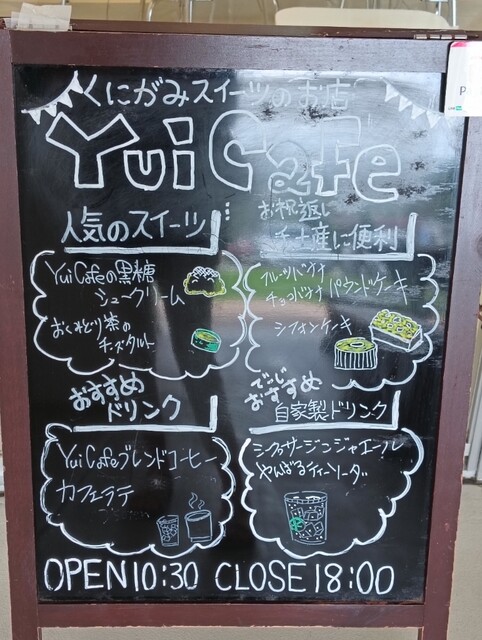 くにがみスイーツのお店
Yui Cafe
人気のスイーツ
Yui Cafeの黒糖
シュークリーム
おくみどり茶の
チーズタルト
お祝返し
手土産に便利
フルーツバナナ
チョコバナナ パウンドケーキ
シフォンケーキ
おすすめ
ドリンク
Yui Cafeブレンドコーヒー
カフェラテ
おすすめ
自家製ドリンク
シークヮーサージンジャエール
やんばるティーソーダ
OPEN 10:30 CLOSE 18:00